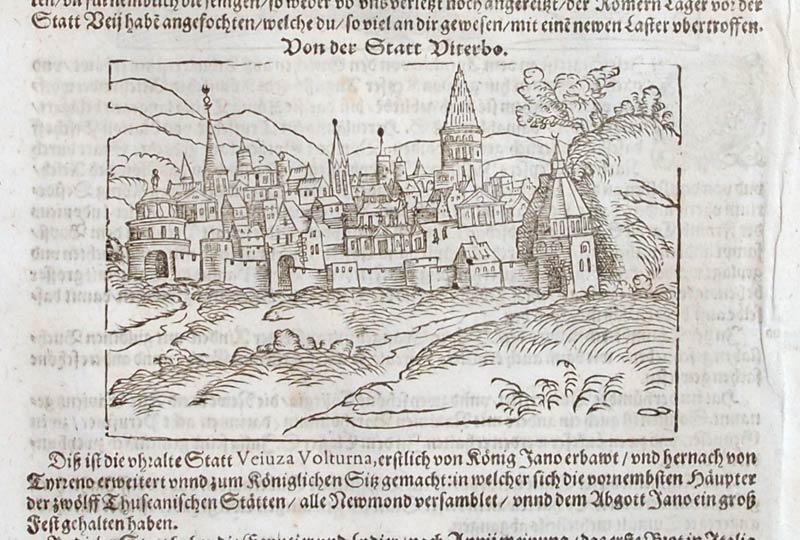 ten/ vñ fürnemblich die jenigen/ so weder vo vns verletzt noch angereitzt/ der Römern Läger vor der
Statt Veij habẽ angefochten/ welche du/ so viel an dir gewesen/ mit einẽ newen Laster vbertroffen.
Von der Statt Viterbo.
Diß ist die vhralte Statt Veiuza Volturna, erstlich von König Jano erbawt/ vnd hernach von
Tyrreno erweitert vnnd zum Königlichen Sitz gemacht: in welcher sich die vornembsten Häupter
der zwölff Thuscanischen Stätten/ alle Newmond versamblet/ vnnd dem Abgott Jano ein groß
Fest gehalten haben.